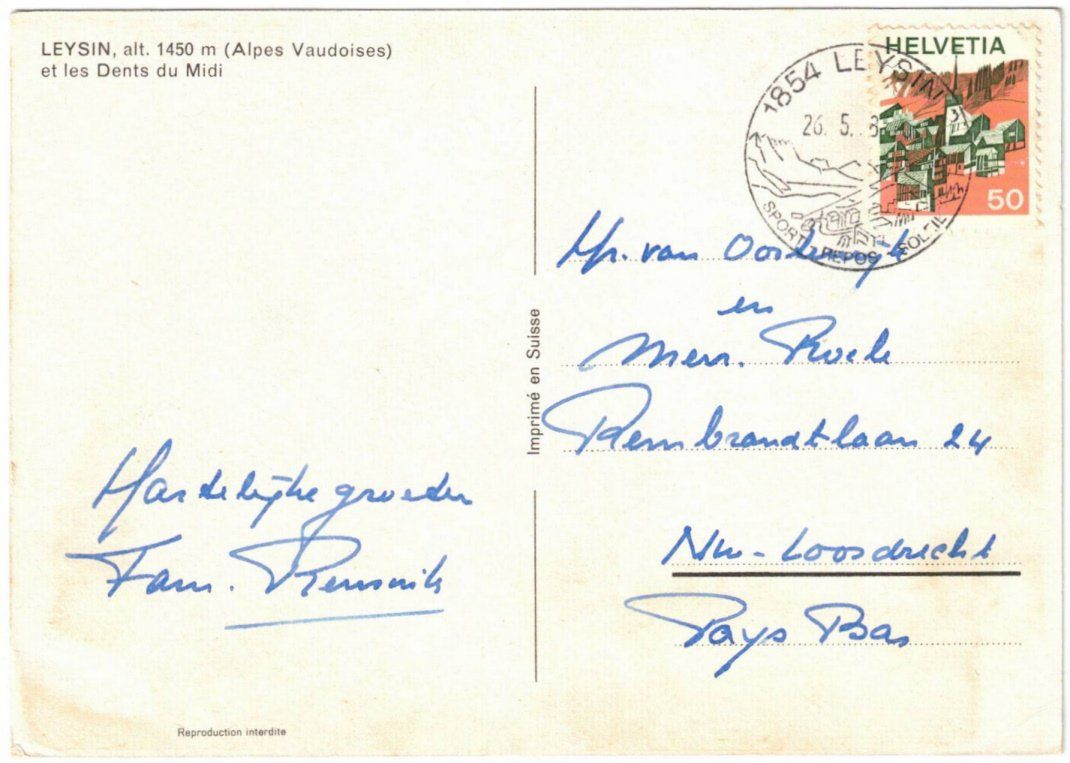 LEYSIN, alt. 1450 m (Alpes Vaudoises)
et les Dents du Midi
HELVETIA
50
1854 LEYSIN
26. 5. 8
SPORT REPOS SOLEIL
Imprimé en Suisse
Hr. van Oosterwijk
en
Mevr. Roele
Rembrandtlaan 24
Nw-Loosdrecht
Pays Bas
Hartelijke groeten
Fam. Rensink
Reproduction interdite